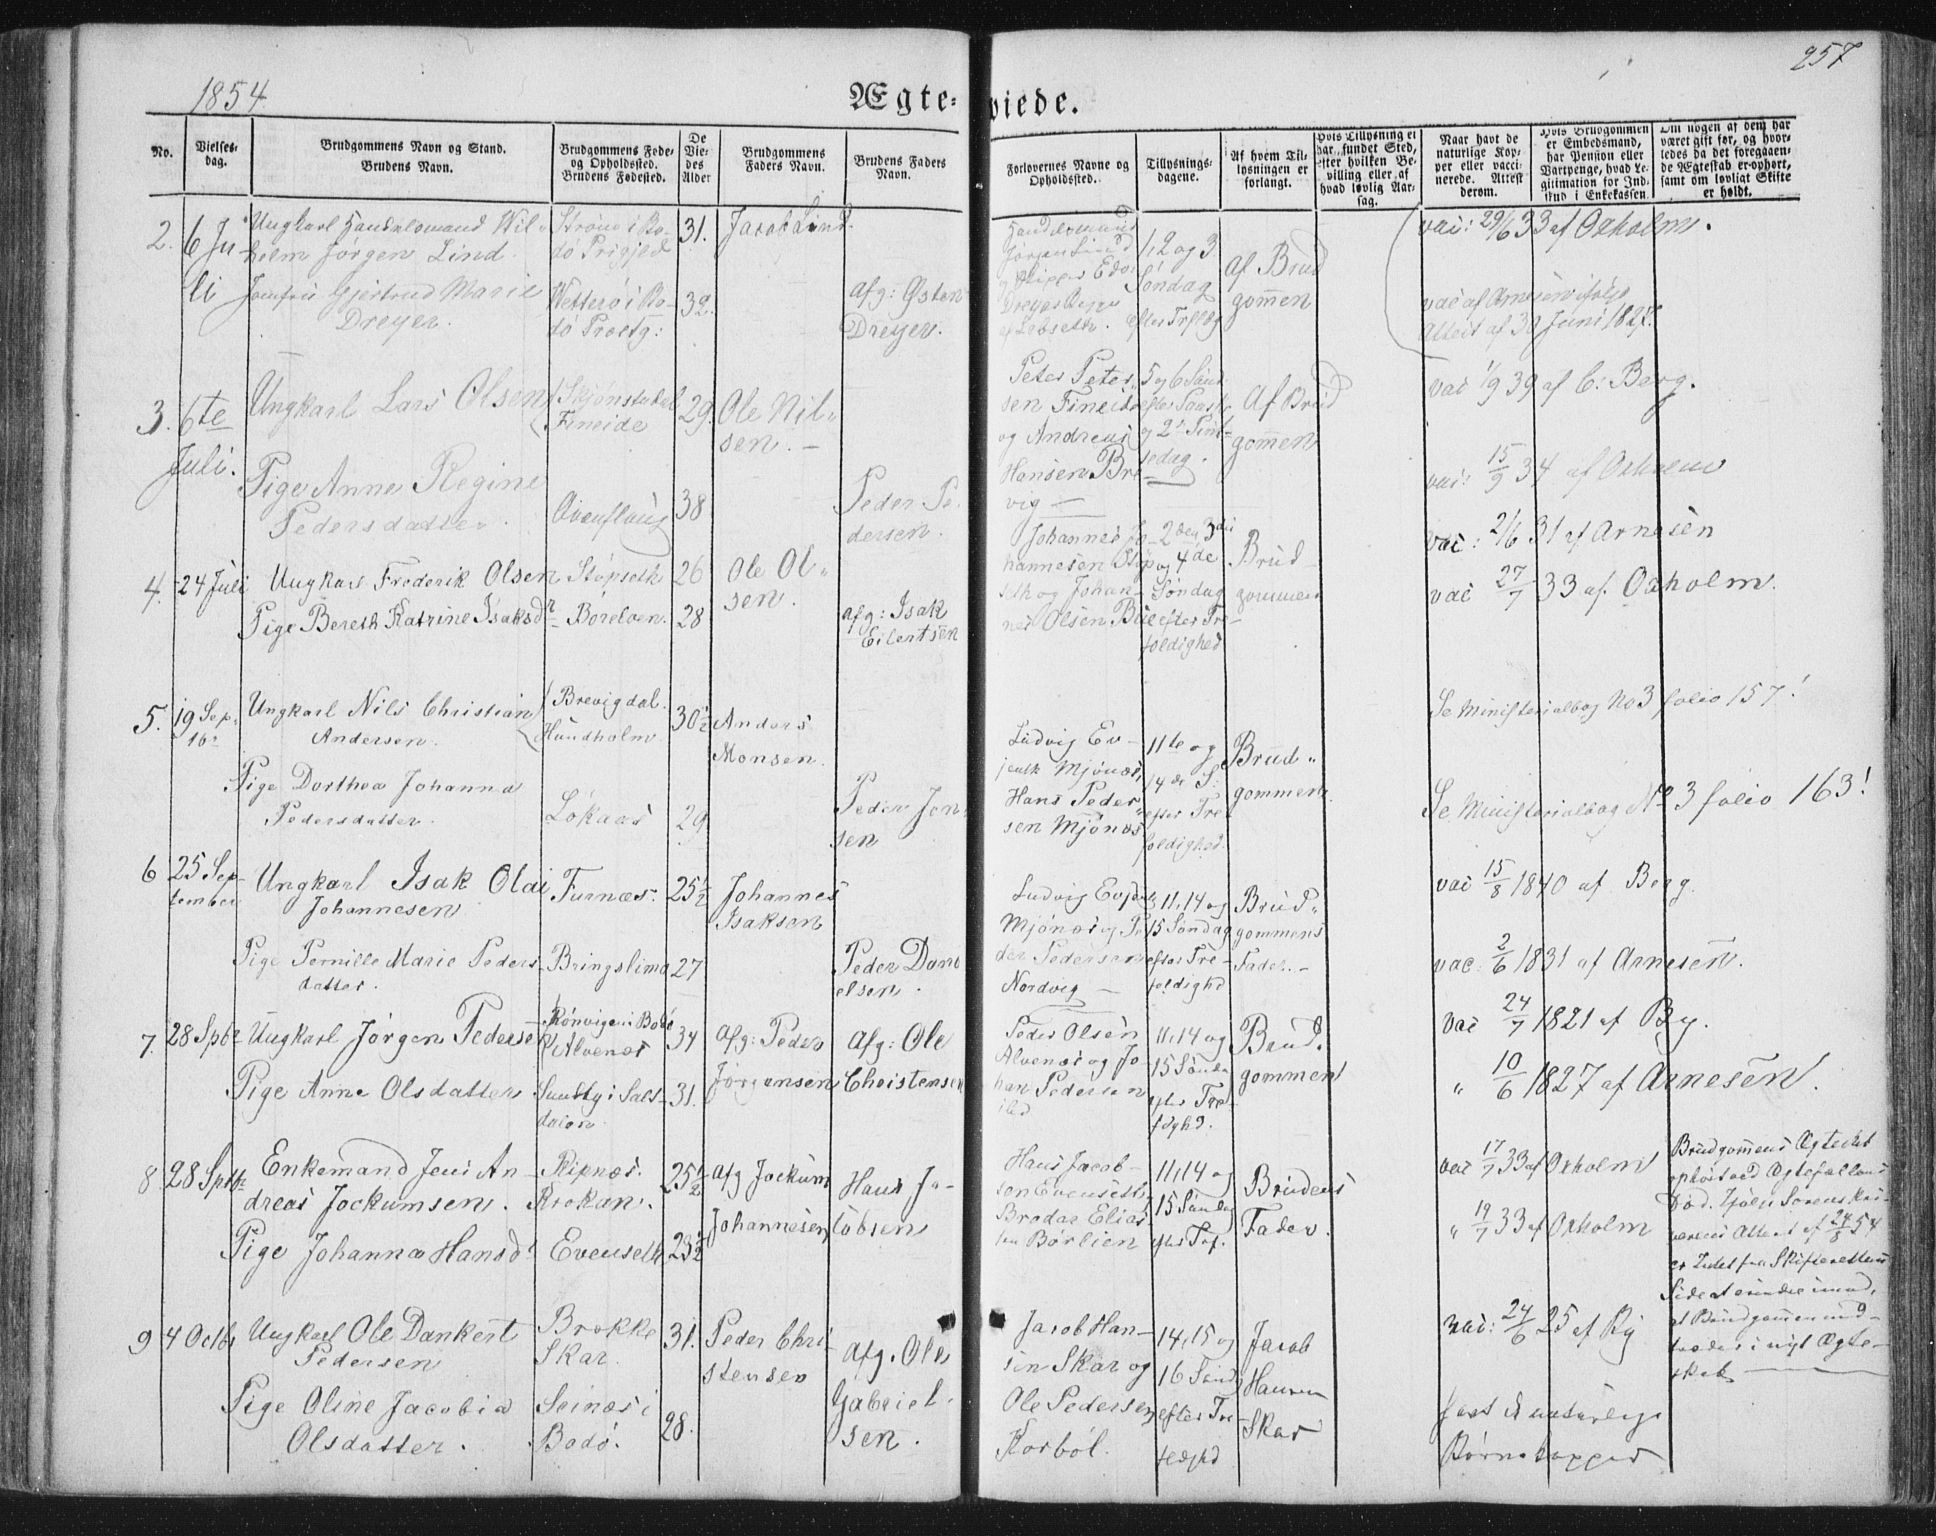 1854
257
Ægte-
viede.
No.
Vielses-
dag.
Brudgommens Navn og Stand.
Brudens Navn.
Brudgommens Føde-
og Opholdssted.
Brudens Fødested.
De
Vie-
des
Alder
Brudgommens
Faders Navn.
Brudens Faders
Navn.
Forlovernes Navne og
Opholdssted.
Tillysnings-
dagene.
Af hvem Til-
lysningen er
forlangt.
Hvis Tillysning ei
har fundet Sted,
efter hvilken Be-
villing eller af
hvad lovlig Aar-
sag.
Naar havt de
naturlige Kop-
per eller vacci-
nerede. Attest
derom.
Hvis Brudgommen
er Embedsmand,
har Pension eller
Vartpenge, hvad Le-
gitimation for Ind-
skud i Enkekassen.
Om nogen af dem har
været gift før, og hvor-
ledes da det foregaaen-
de Ægteskab er ophørt,
samt om lovligt Skifte
er holdt.
2. 6 Ju
li
Ungkarl Handelsmand Wil-
helm Jørgen Lind.
Jomfru Gjertrud Marie
Dreyer.
Strøm i Bo-
dø Præstgjeld
Wetterø i Bo-
dø Præstg:
31.
32.
Jacob Lind.
afg: Østen
Dreyer.
Handelsmand
Jørgen Lind
1, 2 og 3
Søndag
efter Trefolg
af Brud
gommen
vac: 29/6 33 af Oxholm.
vac af Arnesen ifølge
Attest af 30 Juni 182
3. 6te
Juli.
Ungkarl Lars Olsen
Pige Anne Regine
Pedersdatter.
Skjønstudal
Fineide
29.
38
Ole Nil-
sen. -
Peder Pe-
dersen.
Peter Peter-
sen Fineide
og Andreas
Hansen Bre-
vig
5 og 6 Sønd
efter Paaske
og 2. Pint-
sedag.
Af Brud
gommen
vac 1/9 39 af C: Berg.
vac: 15/9 34 af Oxholm
4. 24 Juli
Ungkarl Frederik Olsen
Pige Bereth Katrine Isaksd
Støpseth
Børelven.
26
28
Ole Ol-
sen.
afg: Isak
Eilertsen
Johannes Jo-
hannesen Støp
seth og Johan-
nes Olsen Bue
2den, 3die
og 4de
Søndag
efter Tre-
foldighed
Brud
gommen
vac: 2/6 31 af Arnesen
vac 27/7 33 af Oxholm.
5. 19 Sep.
Ungkarl Nils Christian
Andersen.
Pige Dorthea Johanna
Pedersdatter.
Brevigdal.
Hundholm
Løkaas
30 1/2
29
Anders
Monsen.
Peder Jon-
sen
Ludvig Ev-
jenth Mjønæs,
Hans Peder-
sen Mjønæs
11te og
14de S:
efter Tre
foldighed.
Brud-
gommen.
Se Ministerialbog No 3 folio 157!
Se Ministerialbog No 3 folio 163!
6 25 Sep-
tember
Ungkarl Isak Olai
Johannesen
Pige Pernille Marie Peders-
datter.
Furnæs.
Bringslimo
25 1/2
27
Johannes
Isaksen
Peder Dani
elsen.
Ludvig Evje
Mjønæs og Pe
der Pedersen
Nordvig
11, 14 og
15 Søndag
efter Tre-
foldighd
Brud-
gommens
Fader. -
vac 15/8 1840 af Berg.
vac: 2/6 1831 af Arnesen.
7. 28 Spbr
Ungkarl Jørgen Pederse
Pige Anne Olsdatter
Rønvigen i Bodø
Alvenæs
Sundby i Sals-
dalen.
34
31.
afg: Peder
Jørgensen
afg: Ole
Christensen
Peder Olsen
Alvenæs og Jo-
han Pedersen
11, 14 og
15 Sønda
efter Tre-
fdghd.
Brud.
gommen
vac 24/7 1821 af By.
" 10/6 1827 af Arnesen.
8 28 Sptbr
Enkemand Jens An-
dreas Jockumsen.
Pige Johanna Hansd
Ripnæs.
Krokan.
Evenseth
25 1/2
23 1/2
afg Jockum
Johannesen
Hans Ja-
cobsen
Hans Jacob-
sen Evenseth,
Brodar Elias-
sen Børlien
11, 14 og
15 Sønda
efter Tref.
Brudens
Fader.
vac 17/7 33 af Oxholm
" 19/7 33 af Oxholm
Brudgommens Ægteskab
ophørt ved Ægtefællens
Død. Ifølge Sorenskri-
verens Attest af 24/8 54
er Intet fra Skifterettens
Side at erindre imod,
at Brudgommen ind-
træder i nyt Ægte-
skab
9 4 Octbr
Ungkarl Ole Dankert
Pedersen
Pige Oline Jacobia
Olsdatter.
Brokke
Skar.
Seinæs i
Bodø.
31.
28.
Peder Chri-
stensen
afg. Ole
Gabriel-
sen.
Jacob Han-
sen Skar og
Ole Pedersen
Korbøl.
14, 15 og
16 Sønd
efter Tre
fldghd
Jacob
Hansen
Skar
vac: 24/6 25 af By
havt de naturlige
Børnekopper